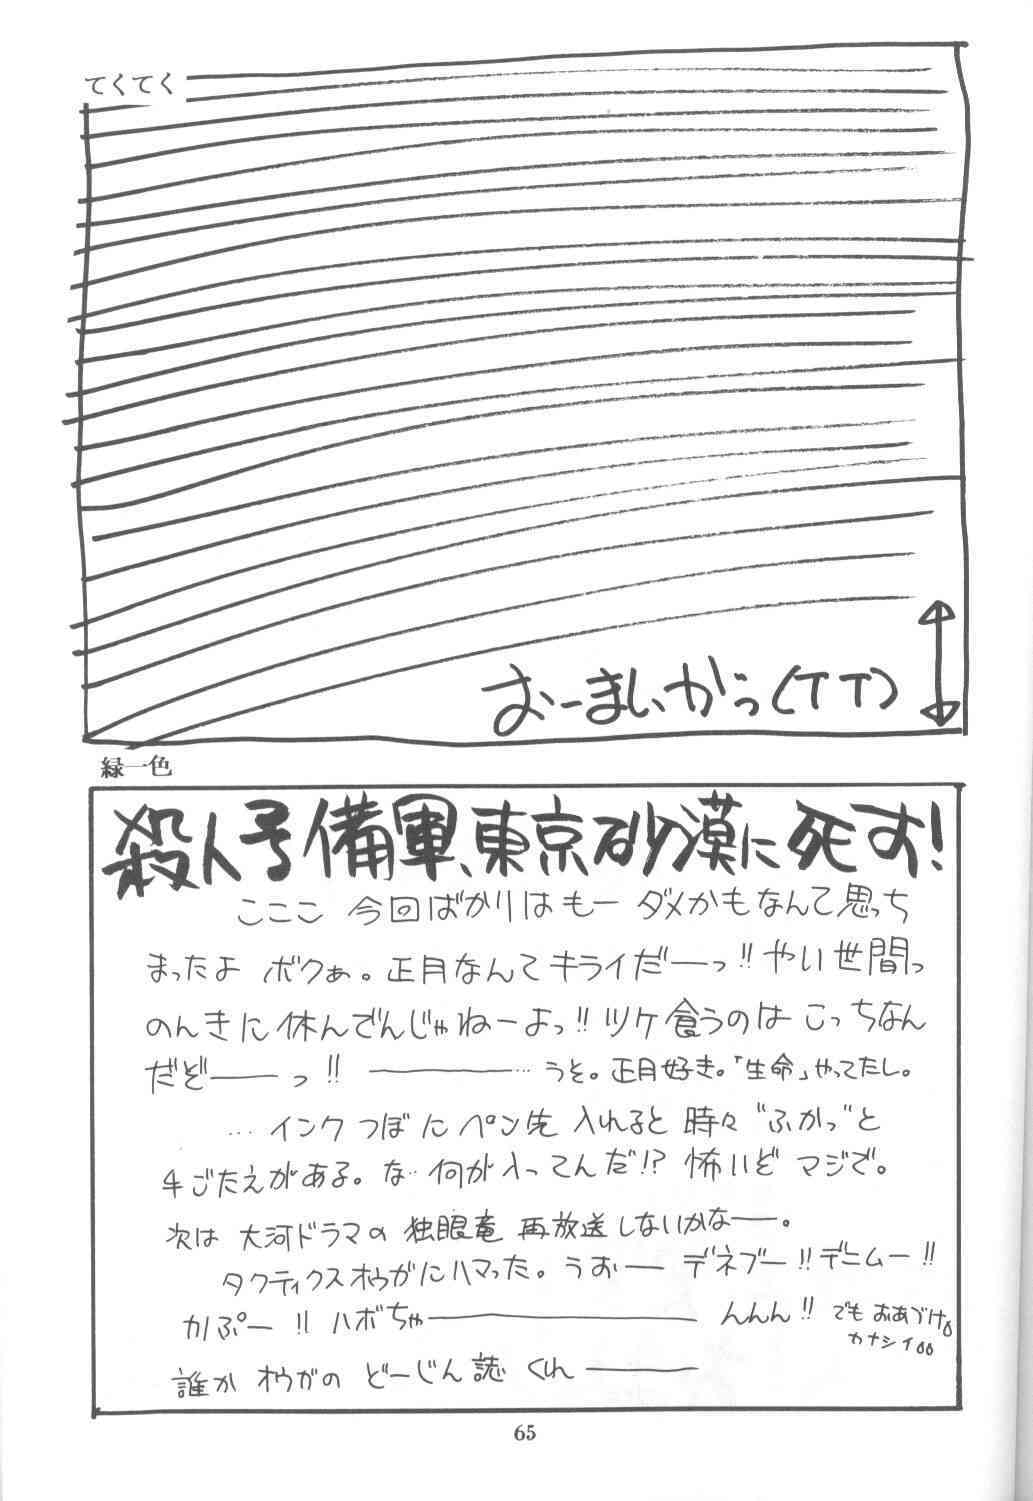 てくてく
おーまいがっ(TT)
緑一色
殺人予備軍、東京砂漠に死す!
こここ 今回ばかりはもー ダメかもなんて思っち
まったよ ボクぁ。正月なんてキライだーーっ!!やい世間っ
のんきに休んでんじゃねーよっ!!ツケ食うのは こっちなん
だぞ――っ!! ――――…うそ。正月好き。「生命」やってたし。
…インクつぼにペン先 入れると 時々 “ふかっ”と
手ごたえがある。な…何が入ってんだ!? 怖いぞ マジで。
次は 大河ドラマの 独眼竜 再放送しないかなー。
タクティクスオウガにハマった。うおー デネブー!!デニムー!!
カノぷー!! ハボちゃ――――んんん!! でも おあづけ。
カナシイ。。
誰か オウガの どーじん誌 くれ――
65